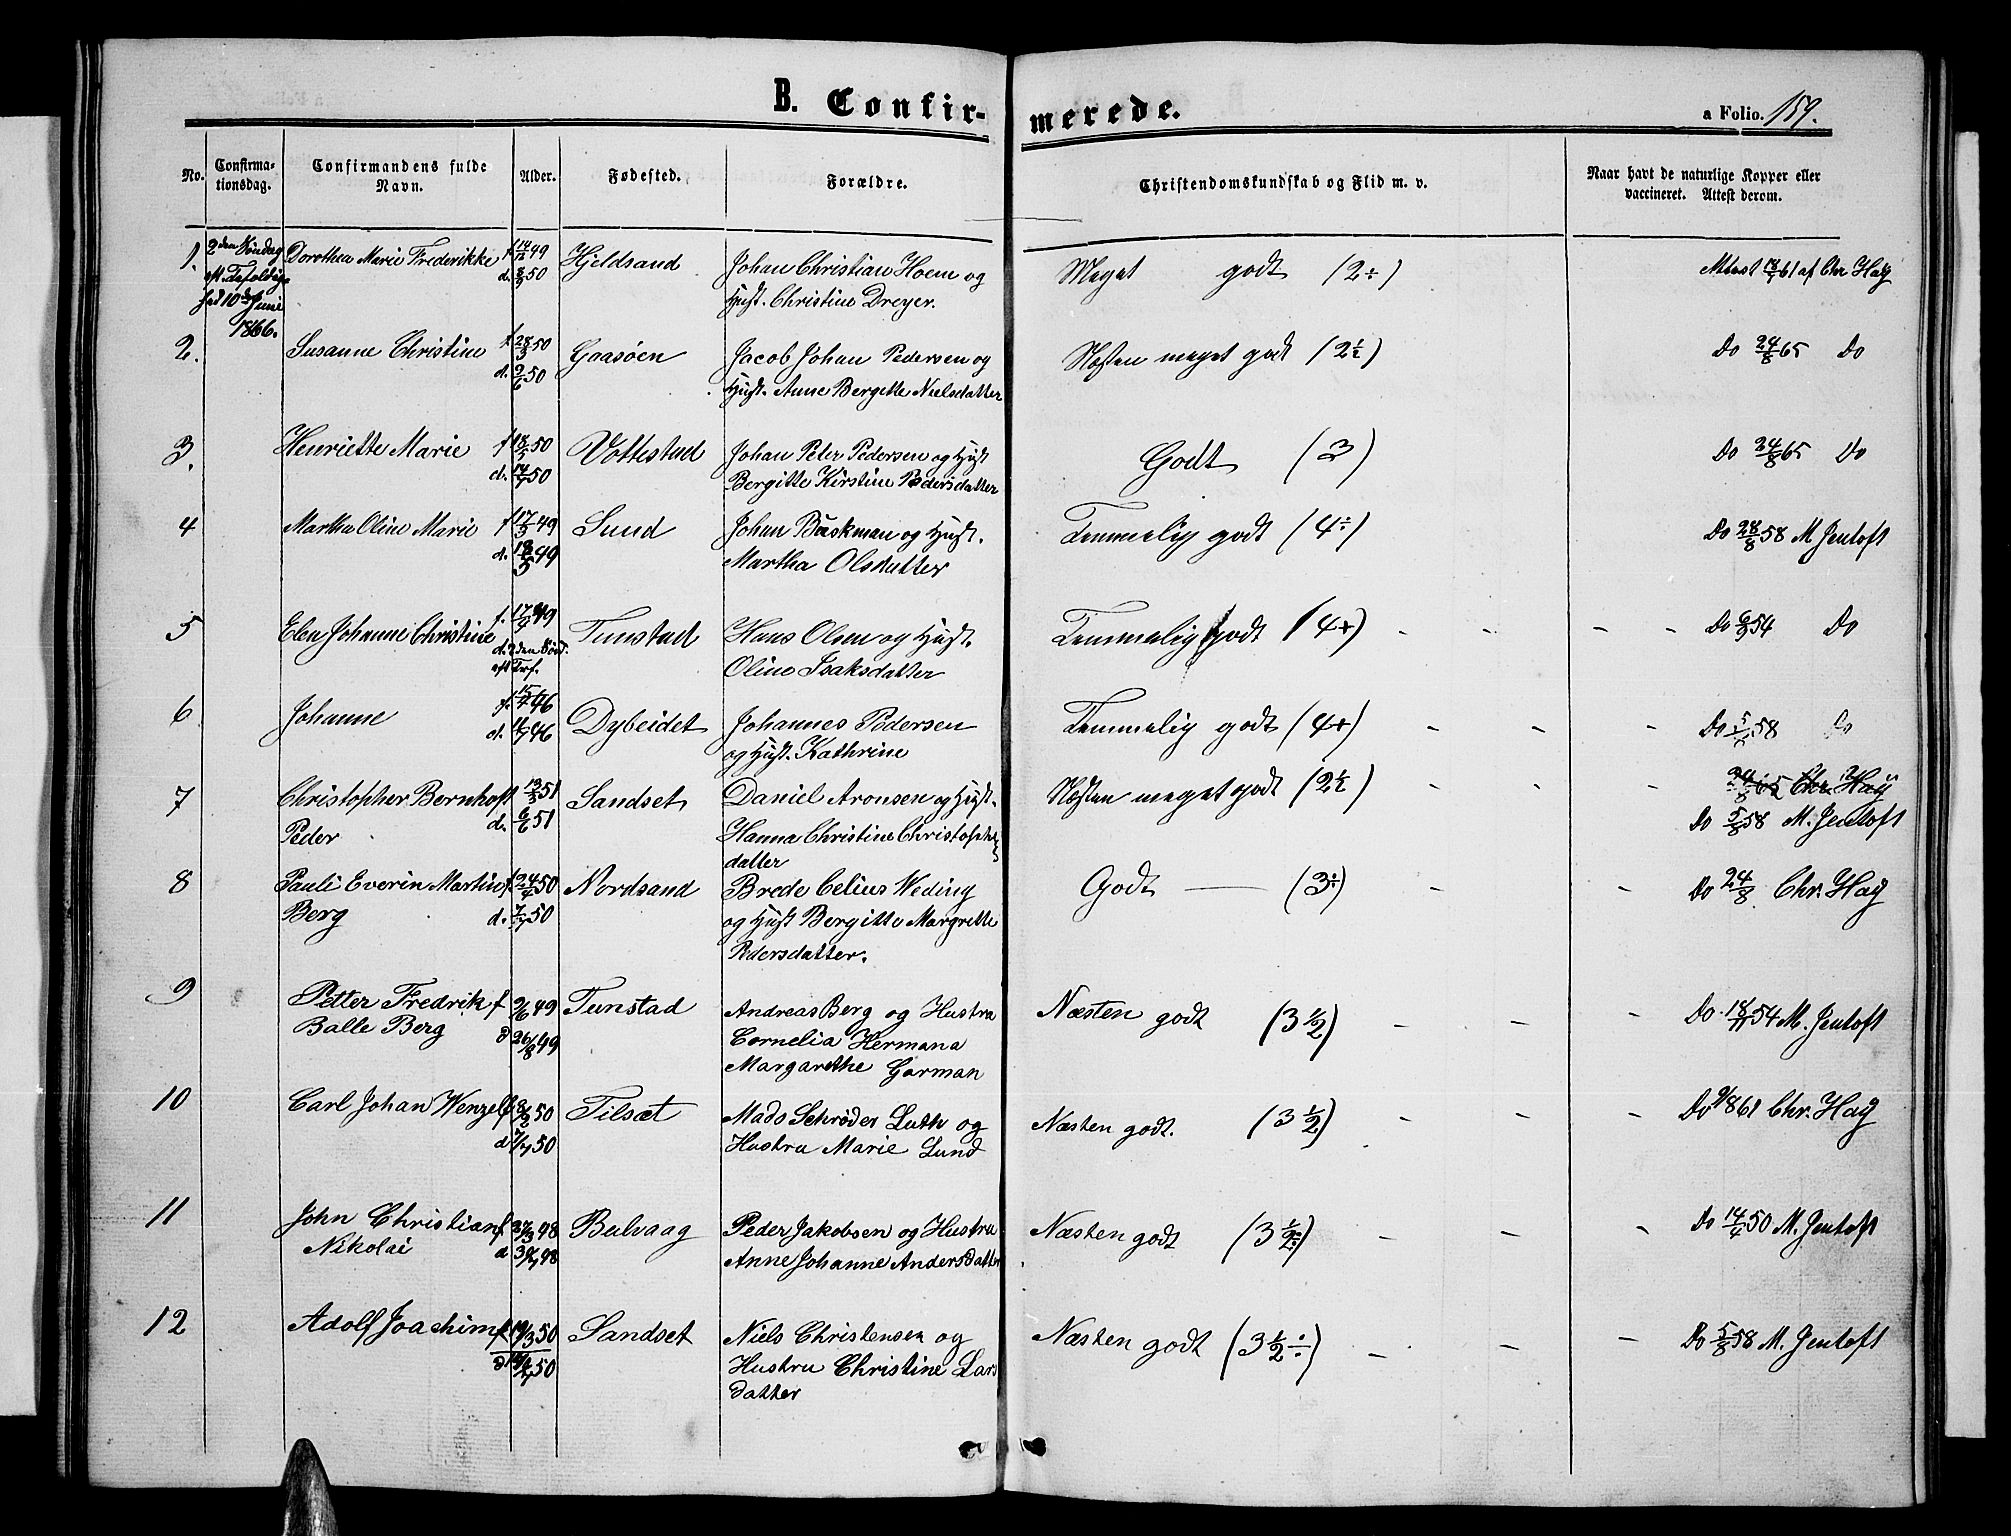 B. Confir-
merede.
a Folio. 159.
No.
Confirma-
tionsdag.
Confirmandens fulde
Navn.
Alder.
Fødested.
Forældre.
Christendomskundskab og Flid m. v.
Naar havt de naturlige Kopper eller
vaccineret. Attest derom.
1. 2den Søndag Dorothea Marie Frederikke f 14/12 49 Hjeldsand Johan Christian Hoem og Meget godt (2÷) Attest 61 af Chr Hag
eft. Trefoldig- d. 50 Hust. Christine Dreyer.
hed 10de Juni
1866.
2. Susanne Christine f 28/3 50 Gaasøen Jacob Johan Pedersen og Næsten meget godt (2½) Do 24/8 65 Do
d. 9/6 50 Hust. Anne Bergitte Nielsdatter
3. Henriette Marie f 18/5 50 Vottestad Johan Peter Pedersen og Hust Godt (3) Do 24/8 65 Do
d. 14/7 50 Bergitte Kirstine Pedersdatter
4 Martha Oline Marie f 17/3 49 Sund Johan Bæskman og Hust. Temmelig godt (4÷) Do 28/8 58 M Jentoft
d. 49 Martha Olsdatter
5 Elen Johanne Christine f. 17/4 49 Tunstad Hans Olsen og Hust. Temmelig godt (4+) - - - - Do 54 Do
d. 2den Sønd. Oline Isaksdatter
eft Tref.
6 Johanne f. 46 Dybeidet Johannes Pedersen Temmelig godt (4+) - - - Do 58 Do
d. 46 og Hust. Kathrine
7 Christopher Bernhoft 51 Sandset Daniel Aronsen og Hust. Næsten meget godt (2½) - - - 24/8 65 Chr. Hag
Peder d. 6/6 51 Hanna Christine Christopher Do 5/8 58 M. Jentoft
datter
8 Pauli Everin Martin f. 24/4 50 Nordsand Brede Celius Weding Godt — (3÷) - - Do 24/8 Chr. Hag
Berg d. 7/7 50 og Hust Bergitte Margrette
Pedersdatter.
9 Petter Fredrik f 9/6 49 Tunstad Andreas Berg og Hustru Næsten godt (3½) - - - Do 18/11 54 M. Jentoft
Balle Berg d 26/8 49 Cornelia Hermana
Margarethe Garman
10 Carl Johan Wenzel f 8/2 50 Tilsæt Mads Schrøder Luth og Næsten godt. (3½) - - - Do 9/8 61 Chr. Hag
d 7/7 50 Hustru Marie Lund
11 John Christian f. 27/3 48 Balvaag Peder Jakobsen og Hustru Næsten godt (3½÷) - - - Do 14/4 50 M. Jentoft
Nikolai d 48 Anne Johanne Andersdatter
12 Adolf Joachim f 50 Sandset Niels Christensen og Næsten godt (3½÷) - - - Do 5/8 58 M. Jentoft
d 50 Hustru Christine Lars
datter